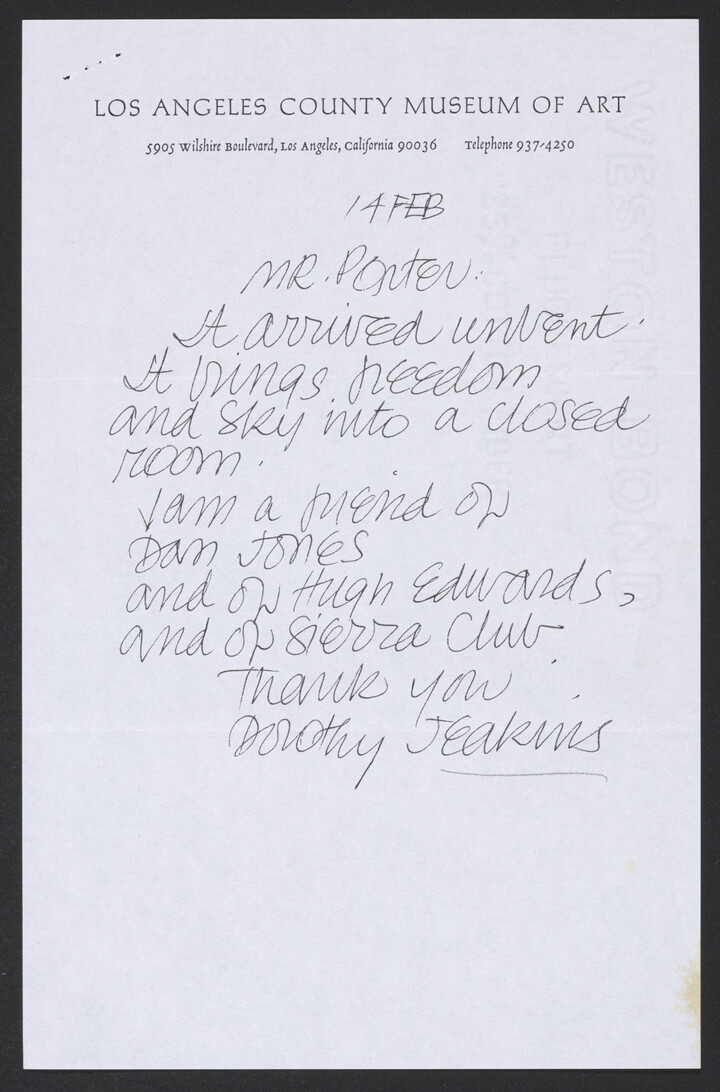 LOS ANGELES COUNTY MUSEUM OF ART
5905 Wilshire Boulevard, Los Angeles, California 90036 Telephone 937-4250
14 FEB
MR. Porter:
It arrived unbent.
It brings freedom
and sky into a closed
room.
I am a friend of
Dan Jones
and of Hugh Edwards,
and of Sierra Club.
Thank you.
Dorothy Jeakins